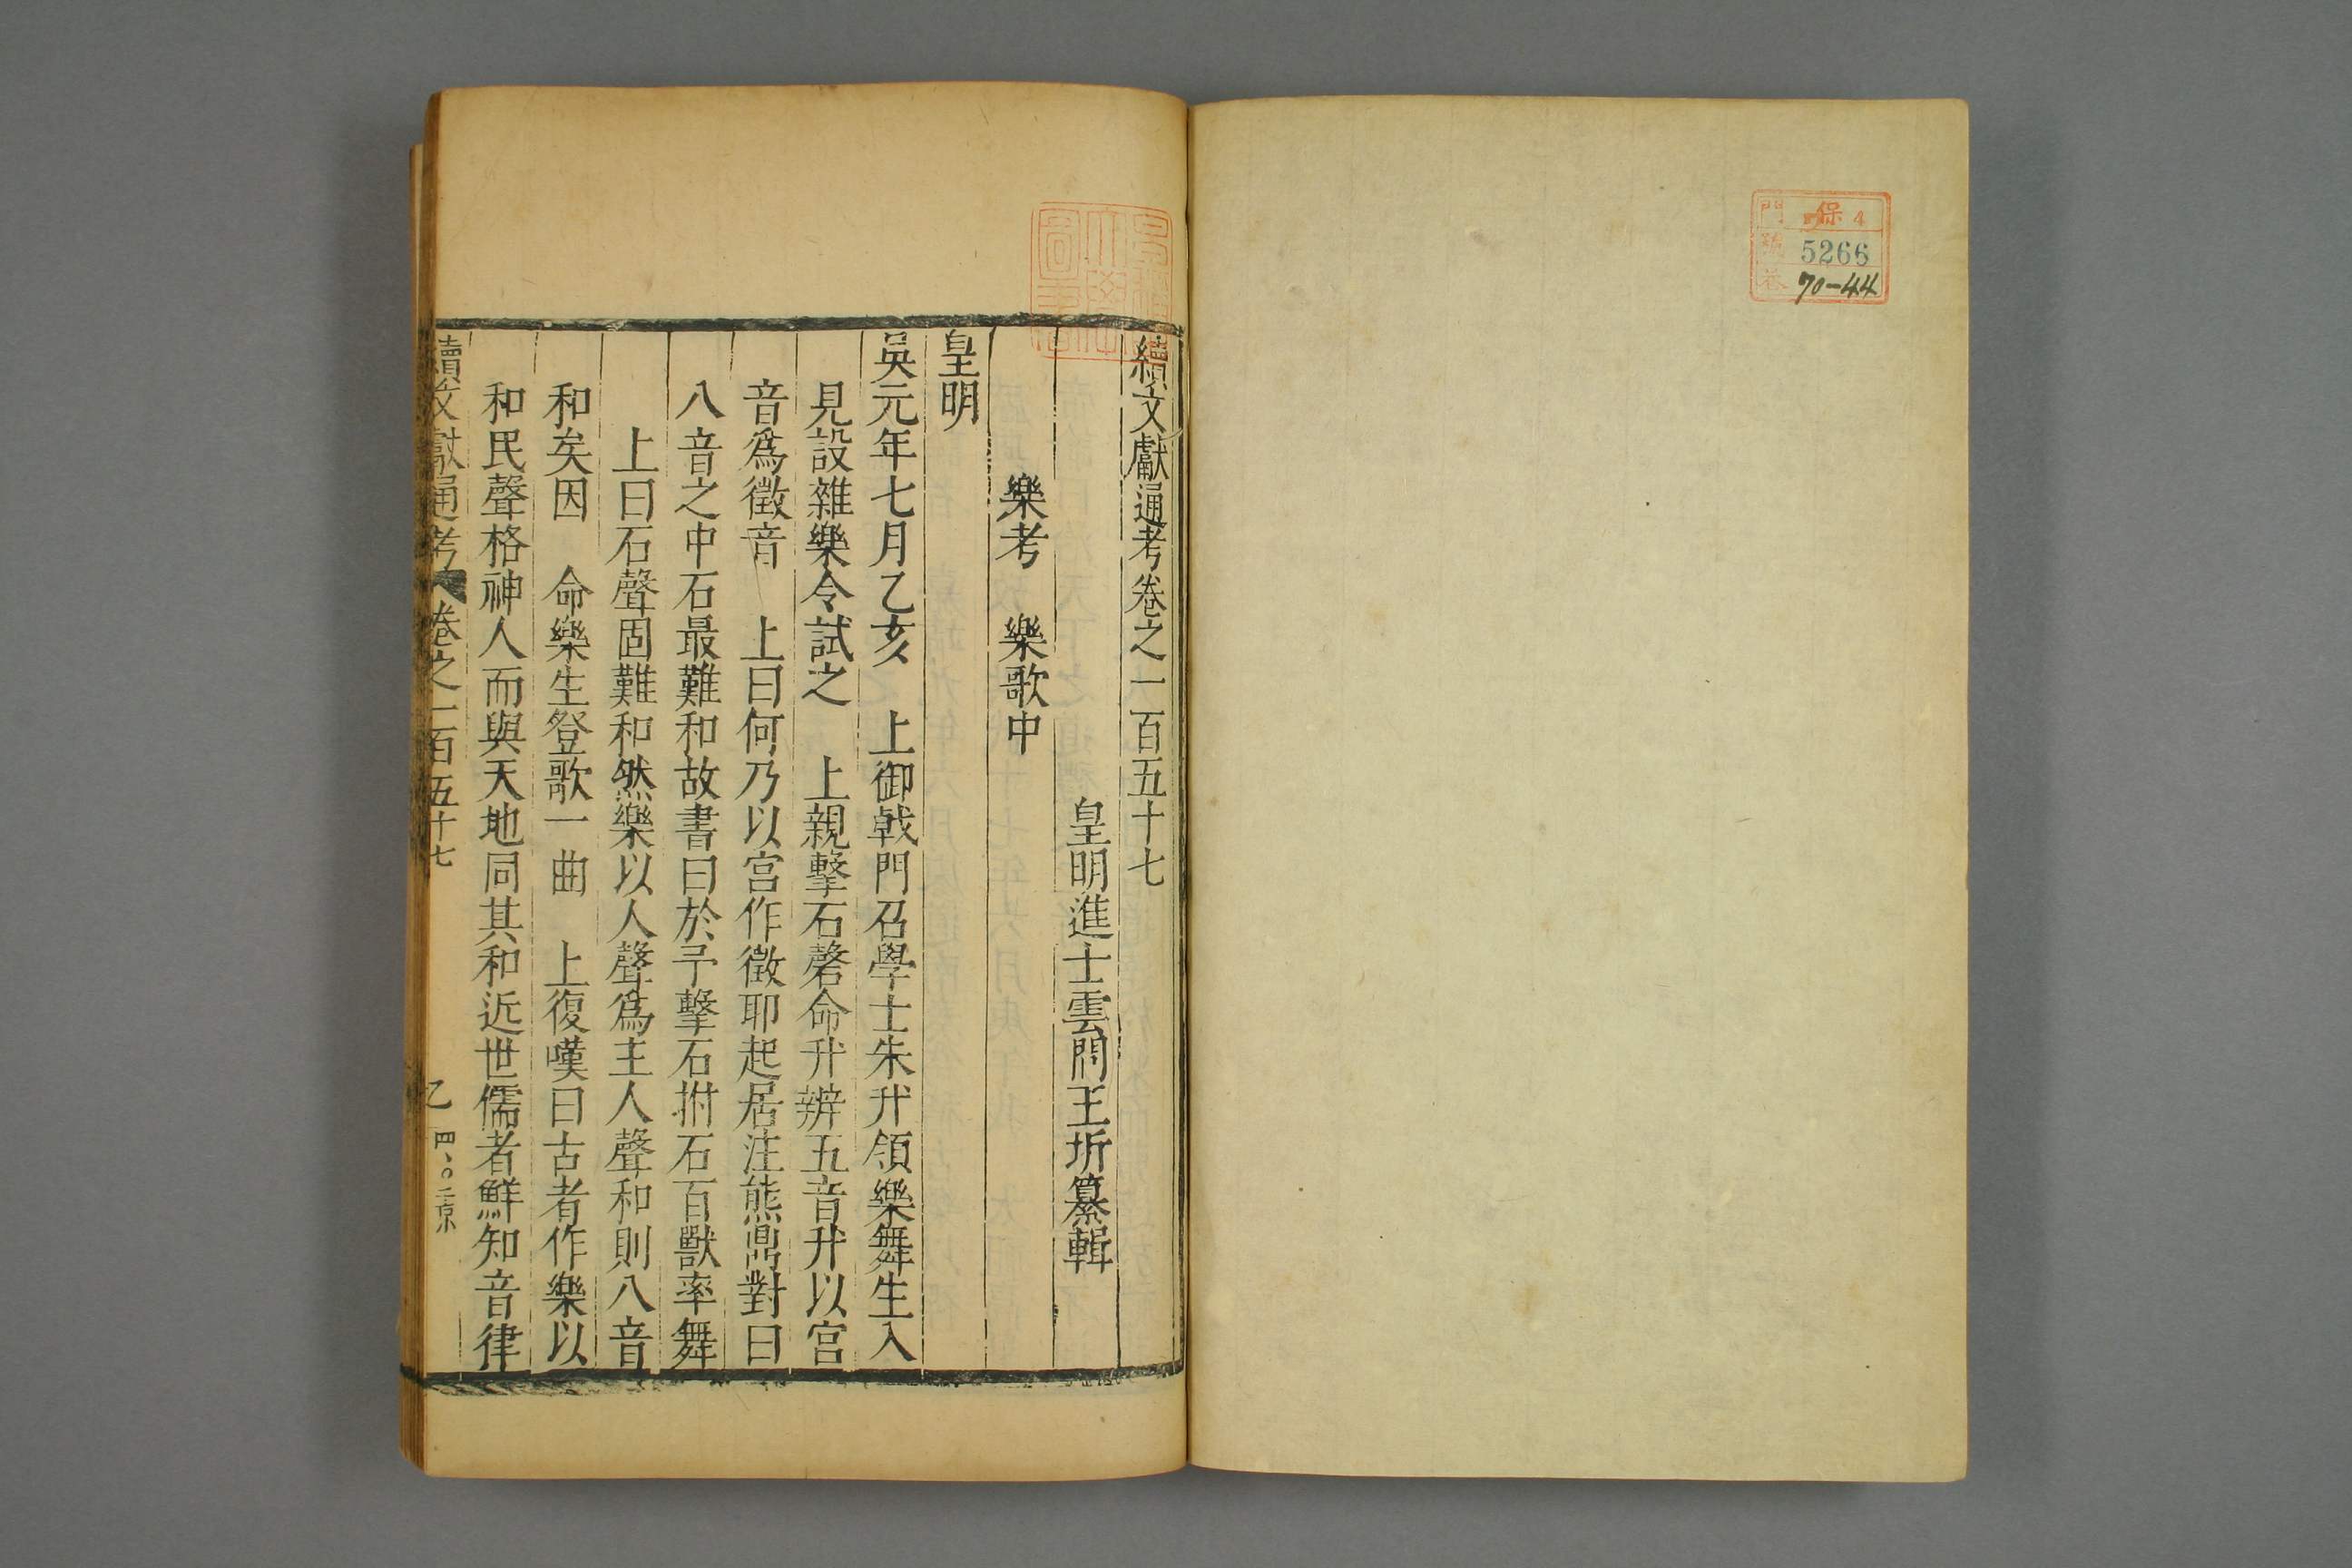 門 保 4
號 5266
卷 70-44
續文獻通考卷之一百五十七
皇明進士雲間王圻纂輯
樂考 樂歌中
皇明
吳元年七月乙亥 上御戟門召學士朱升領樂舞生入
見設雜樂令試之 上親擊石磬命升辨五音升以宮
音爲徵音 上曰何乃以宮作徵耶起居注熊鼎對曰
八音之中石最難和故書曰於予擊石拊石百獸率舞
上曰石聲固難和然樂以人聲爲主人聲和則八音
和矣因 命樂生登歌一曲 上復嘆曰古者作樂以
和民聲格神人而與天地同其和近世儒者鮮知音律
續文獻通考 卷之一百五十七